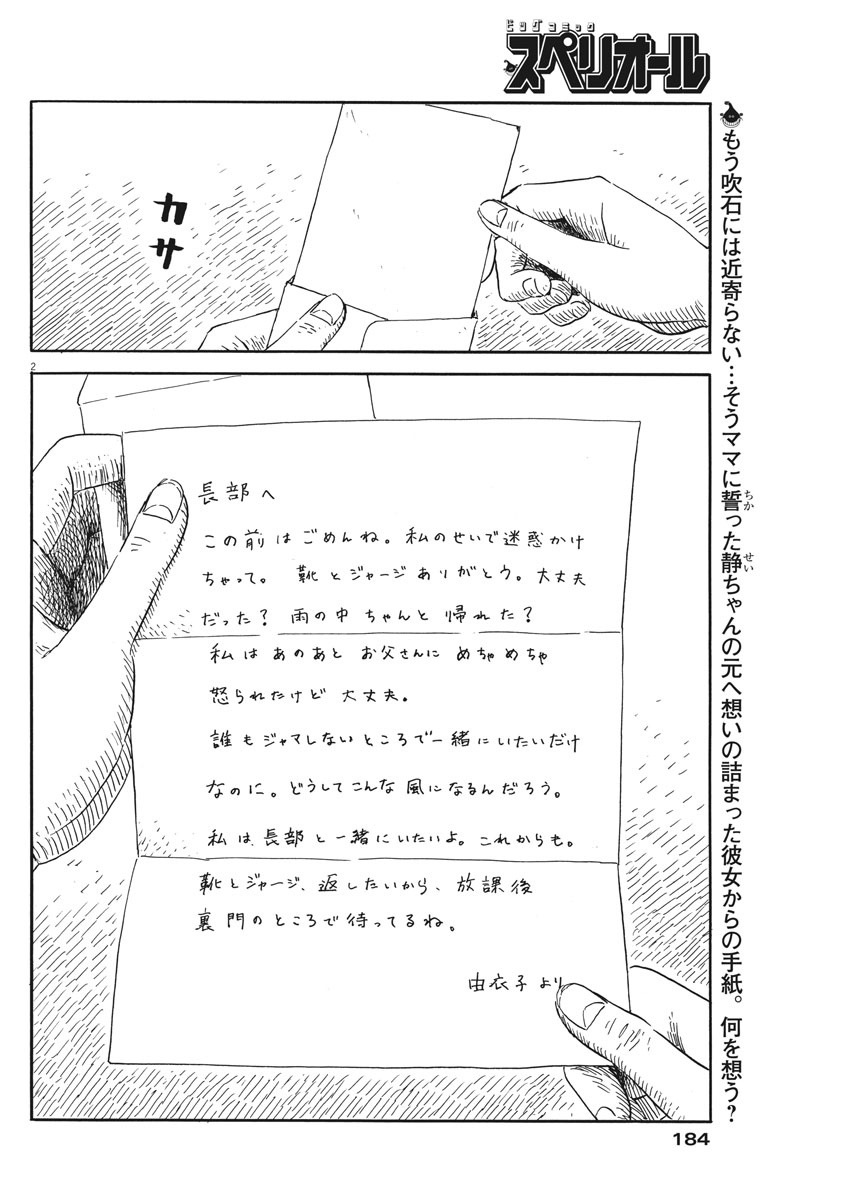 ビッグコミック
スペリオール
もう吹石には近寄らない…そうママに誓った静ちゃんの元へ想いの詰まった彼女からの手紙。何を想う?
ちか
せい
カサ
2
長部へ
この前はごめんね。私のせいで迷惑かけ
ちゃって。靴とジャージありがとう。大丈夫
だった?雨の中ちゃんと帰れた?
私はあのあとお父さんにめちゃめちゃ
怒られたけど大丈夫。
誰もジャマしないところで一緒にいたいだけ
なのに。どうしてこんな風になるんだろう。
私は、長部と一緒にいたいよ。これからも。
靴とジャージ、返したいから、放課後
裏門のところで待ってるね。
由衣子より
184